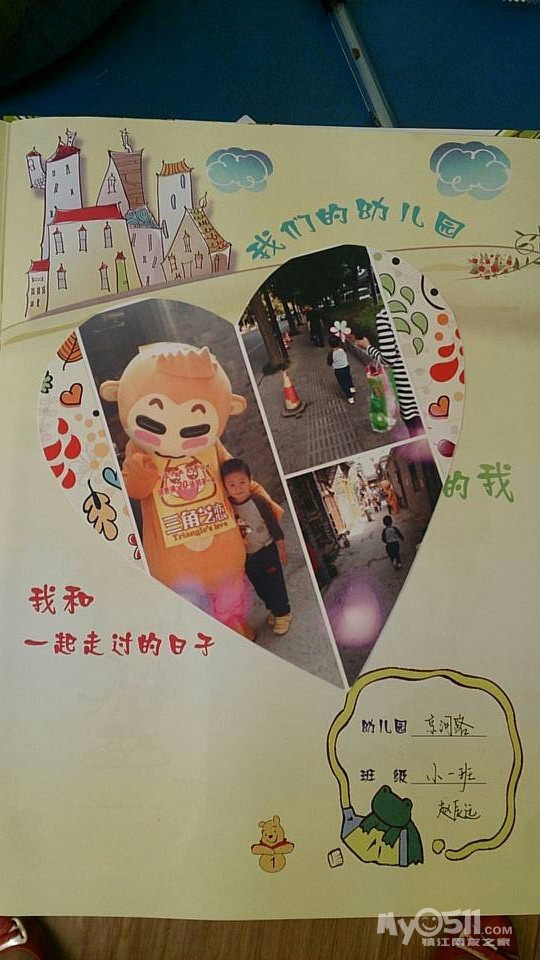 我们的幼儿园
三角艺恋
Triangle's love
的我
我和
一起走过的日子
幼儿园 京河路
班级 小一班
赵辰远
1
My0511.COM
镇江网友之家